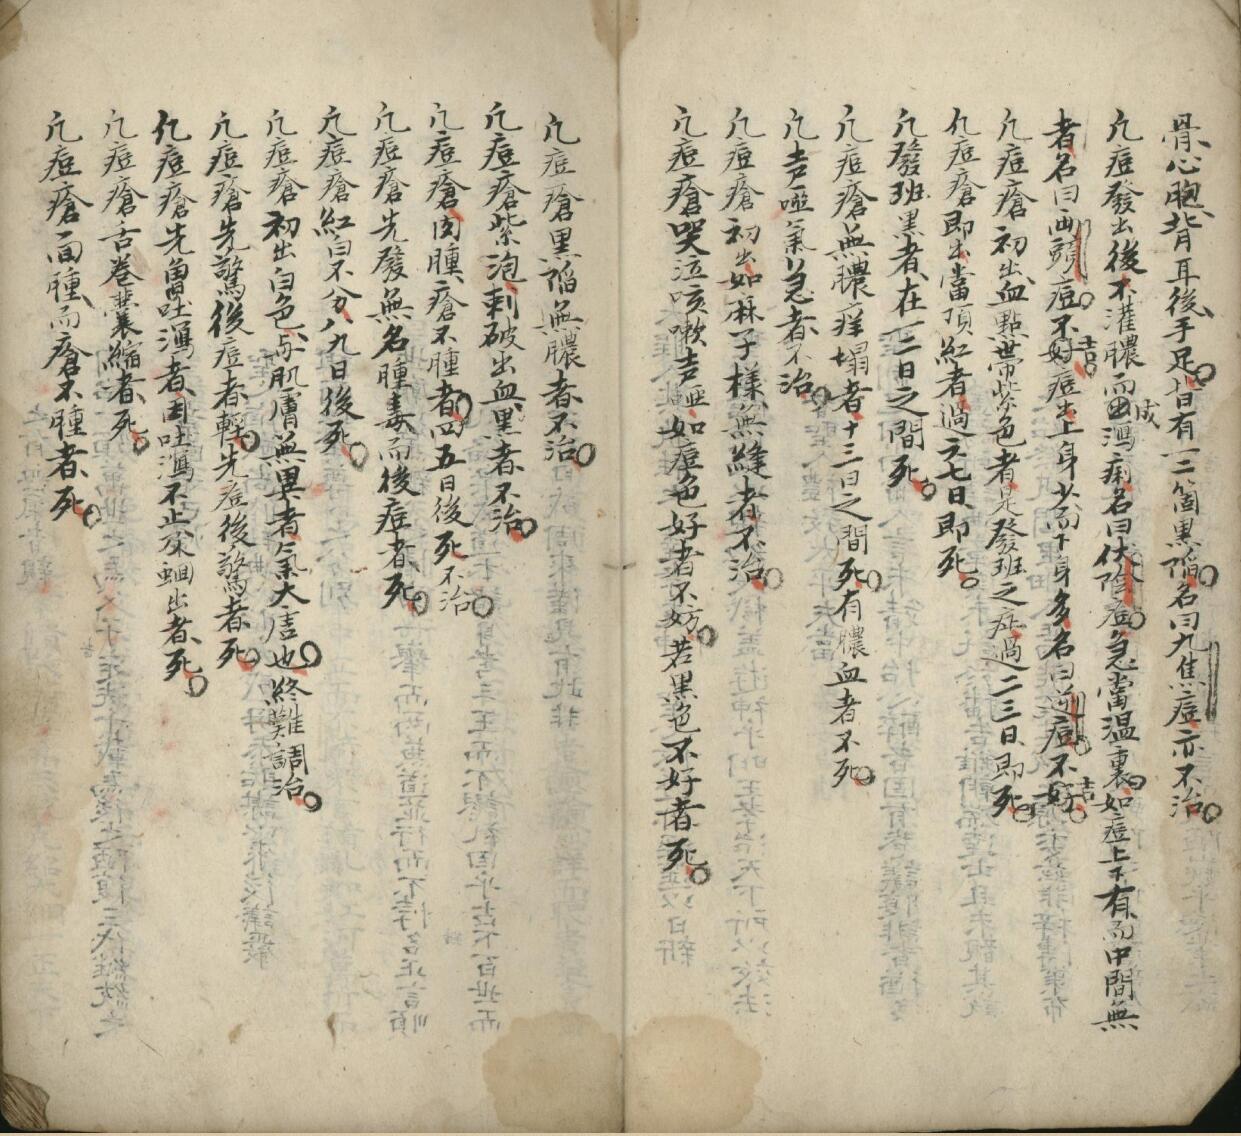 骨心胞背耳後手足皆有一二箇黑陷名曰九焦痘亦不治
凢痘發出後不灌膿而成瀉痢名曰伏陰痘急當溫裏如痘上下有而中間無
者名曰兩頭痘不好吉痘出上身少而下身多名曰逆痘不好吉
凢痘瘡初出血點世帶紫色者是發班之症過二三日即死
凢痘瘡即出當頂紅者過六七日即死
凢發班黑者在一二日之間死
凢痘瘡無膿痒塌者十二日之間死有膿血者不死
凢声啞氣急者不治
凢痘瘡初出如麻子樣無縫者不治
凢痘瘡哭泣咳嗽声啞如痘色好者不妨若黑色不好者死
凢痘瘡黑陷無膿者不治
凢痘瘡紫泡刺破出血黑者不治
凢痘瘡肉腫瘡不腫者四五日後死不治
凢痘瘡先發無名腫毒而後痘者死
凢痘瘡紅白不分八九日後死
凢痘瘡初出白色与肌膚無異者氣大虛也終難調治
凢痘瘡先驚後痘者輕先痘後驚者死
凢痘瘡先吐瀉者因吐瀉不止蛔出者死
凢痘瘡舌卷囊縮者死
凢痘瘡面腫而瘡不腫者死